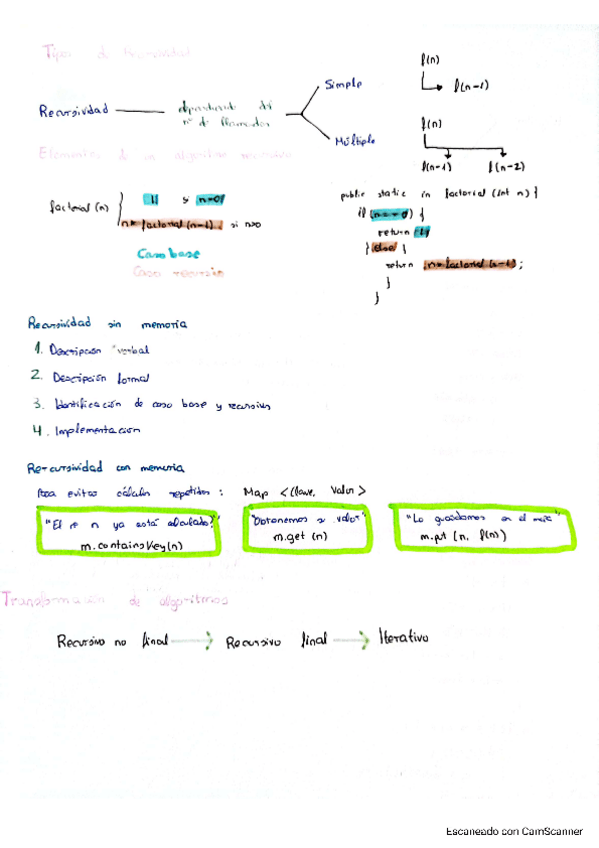 Tipos de Recursividad
Recursividad
dependiendo del
nº de llamadas
Simple
Múltiple
f(n)
f(n-1)
f(n)
f(n-1) f(n-2)
Elementos de un algoritmo recursivo
factorial (n)
1 si n=0
n * factorial (n-1) si no
Caso base
Caso recursivo
public static in factorial (int n) {
if (n == 0) {
return 1;
} else {
return n * factorial (n-1);
}
}
Recursividad sin memoria
1. Descripción verbal
2. Descripción formal
3. Identificación de caso base y recursivo
4. Implementación
Recursividad con memoria
Para evitar cálculos repetidos: Map <Clave, Valor>
"El n ya está calculado?"
m.containsKey(n)
"Obtenemos su valor"
m.get (n)
"Lo guardamos en el"
m.put (n, f(n))
Transformación de algoritmos
Recursivo no final
Recursivo final
Iterativo
Escaneado con CamScanner